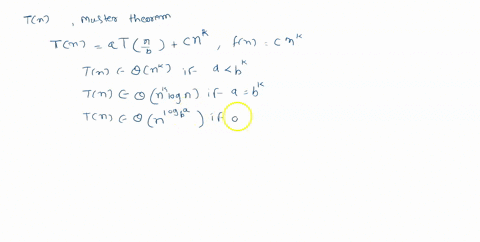 T(n) , Muster theorem
T(n) = a T(n/b) + cn^k , f(n) = c n^k
T(n) ∈ Θ(n^k) if a < b^k
T(n) ∈ Θ(n^k log n) if a = b^k
T(n) ∈ Θ(n^log_b a) if a